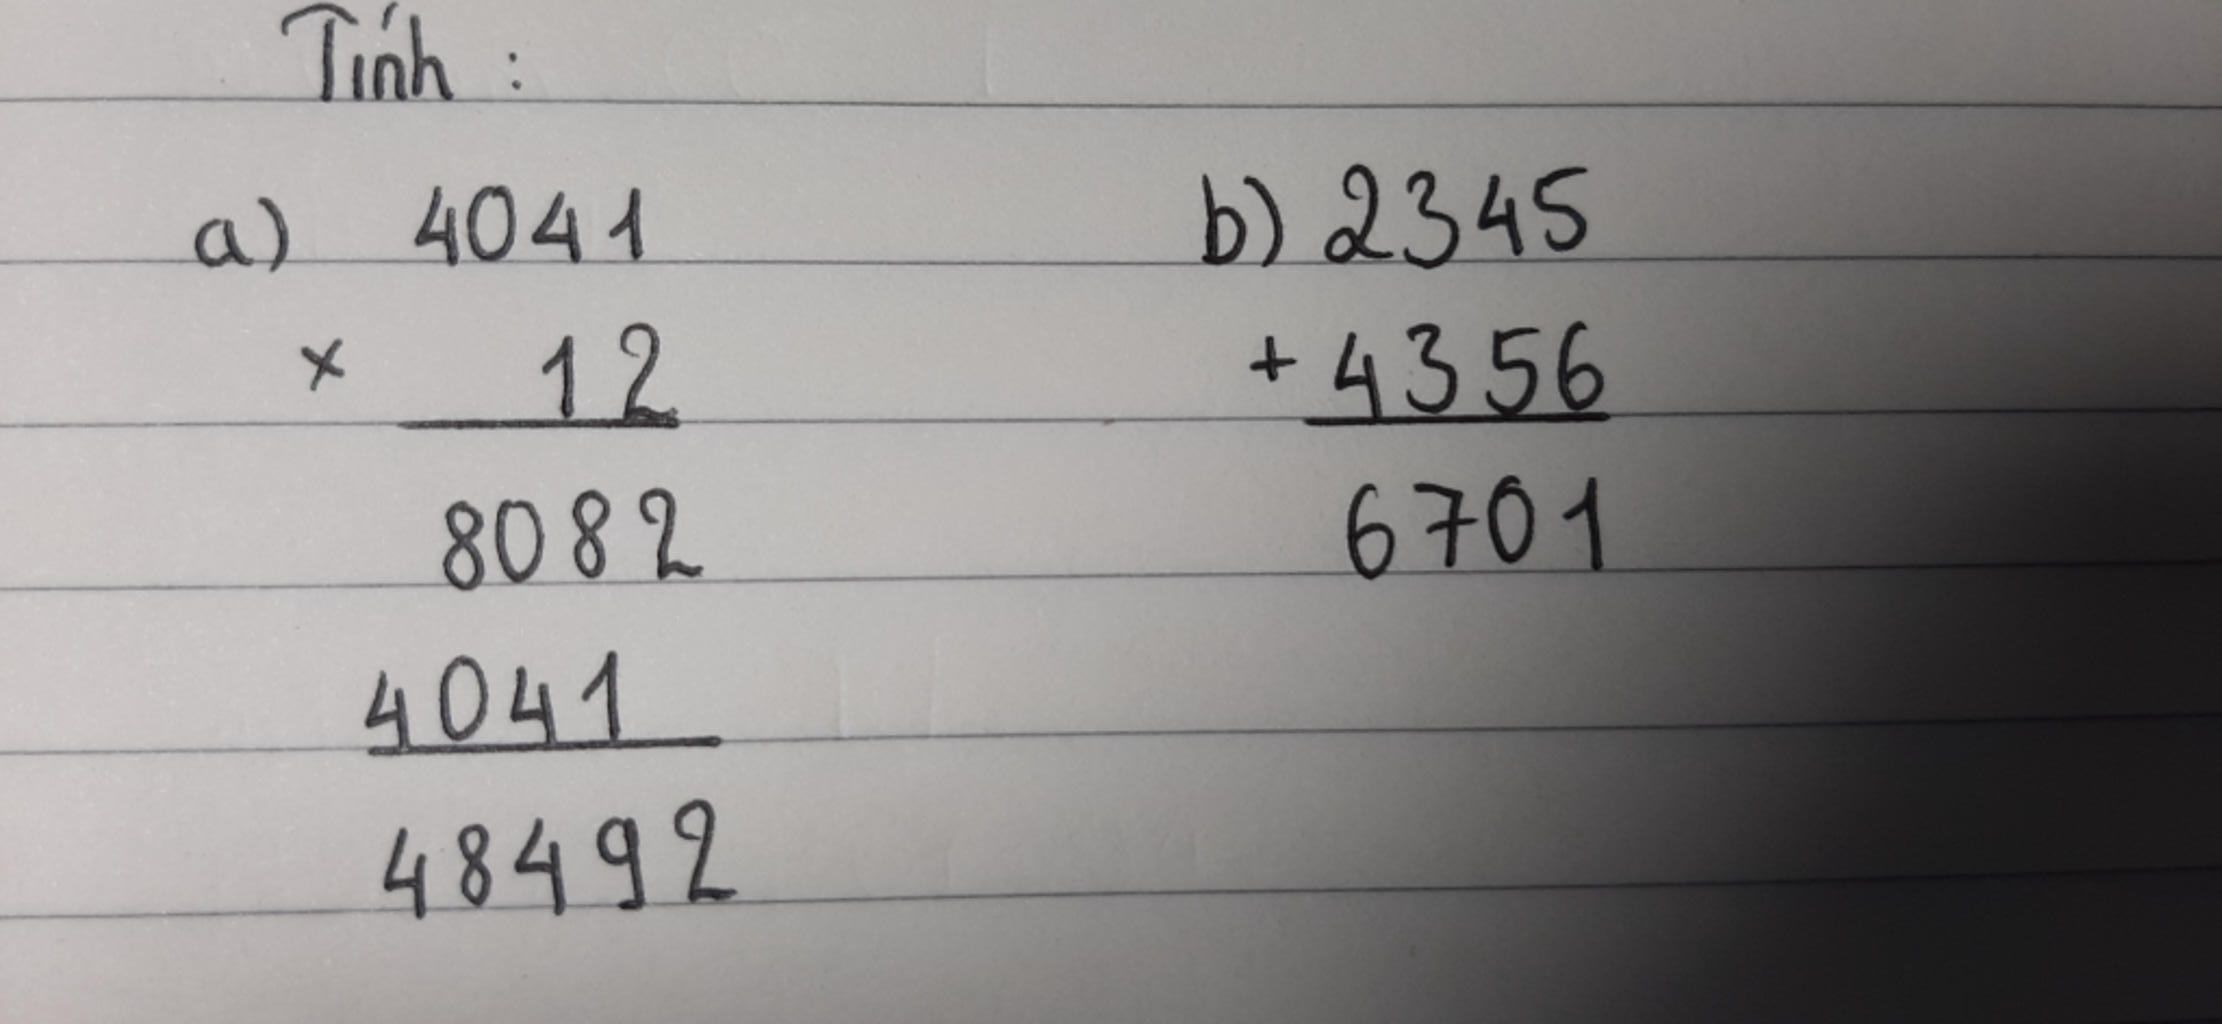 Tính :
a) 4041 b) 2345
x 12 + 4356
8082 6701
4041
48492